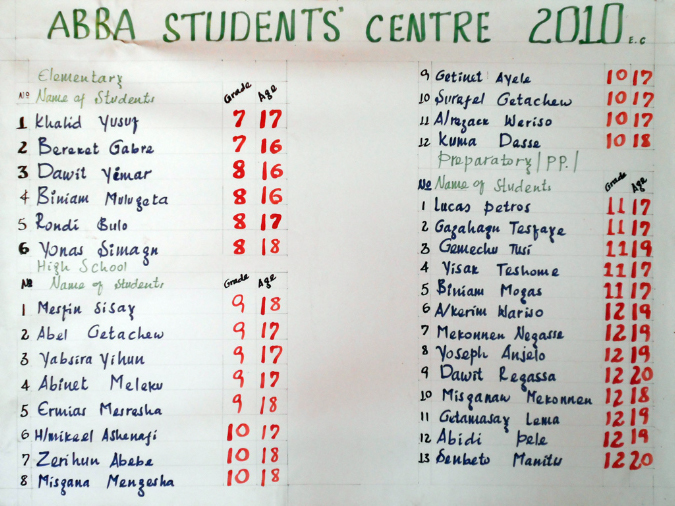 ABBA STUDENTS' CENTRE 2010 E.C
Elementary
No Name of Students Grade Age
1 Khalid Yusuf 7 17
2 Bereket Gabre 7 16
3 Dawit Yimar 8 16
4 Biniam Mulugeta 8 16
5 Rondi Bulo 8 17
6 Yonas Simagn 8 18
High School
No Name of Students Grade Age
1 Mesfin Sisay 9 18
2 Abel Getachew 9 17
3 Yabsira Yihun 9 17
4 Abinet Meleku 9 17
5 Ermias Merresha 9 18
6 H/mikeel Ashenafi 10 17
7 Zerihun Abebe 10 18
8 Misgana Mengesha 10 18
9 Getinet Ayele 10 17
10 Surafel Getachew 10 17
11 Alrazack Wariso 10 17
12 Kuma Dasse 10 18
Preparatory/PP./
No Name of Students Grade Age
1 Lucas Petros 11 17
2 Gazahagn Tesfaye 11 17
3 Gemechu Tusi 11 19
4 Yisak Teshome 11 17
5 Biniam Mogas 11 17
6 A/kerim Wariso 12 19
7 Mekonnen Negasse 12 19
8 Yoseph Anjelo 12 19
9 Dawit Regassa 12 20
10 Misganaw Mekonnen 12 18
11 Getamasay Lema 12 19
12 Abidi Pele 12 19
13 Senbeto Manitu 12 20